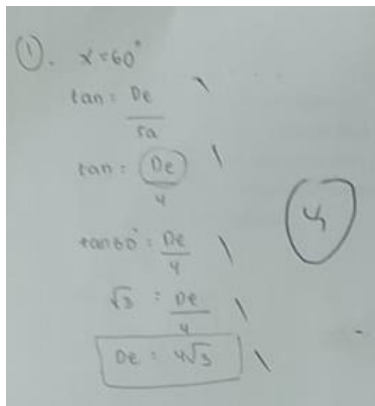 ①. x = 60°
tan = De / sa
tan = De / 4
tan 60° = De / 4
4
√3 = De / 4
De = 4√3